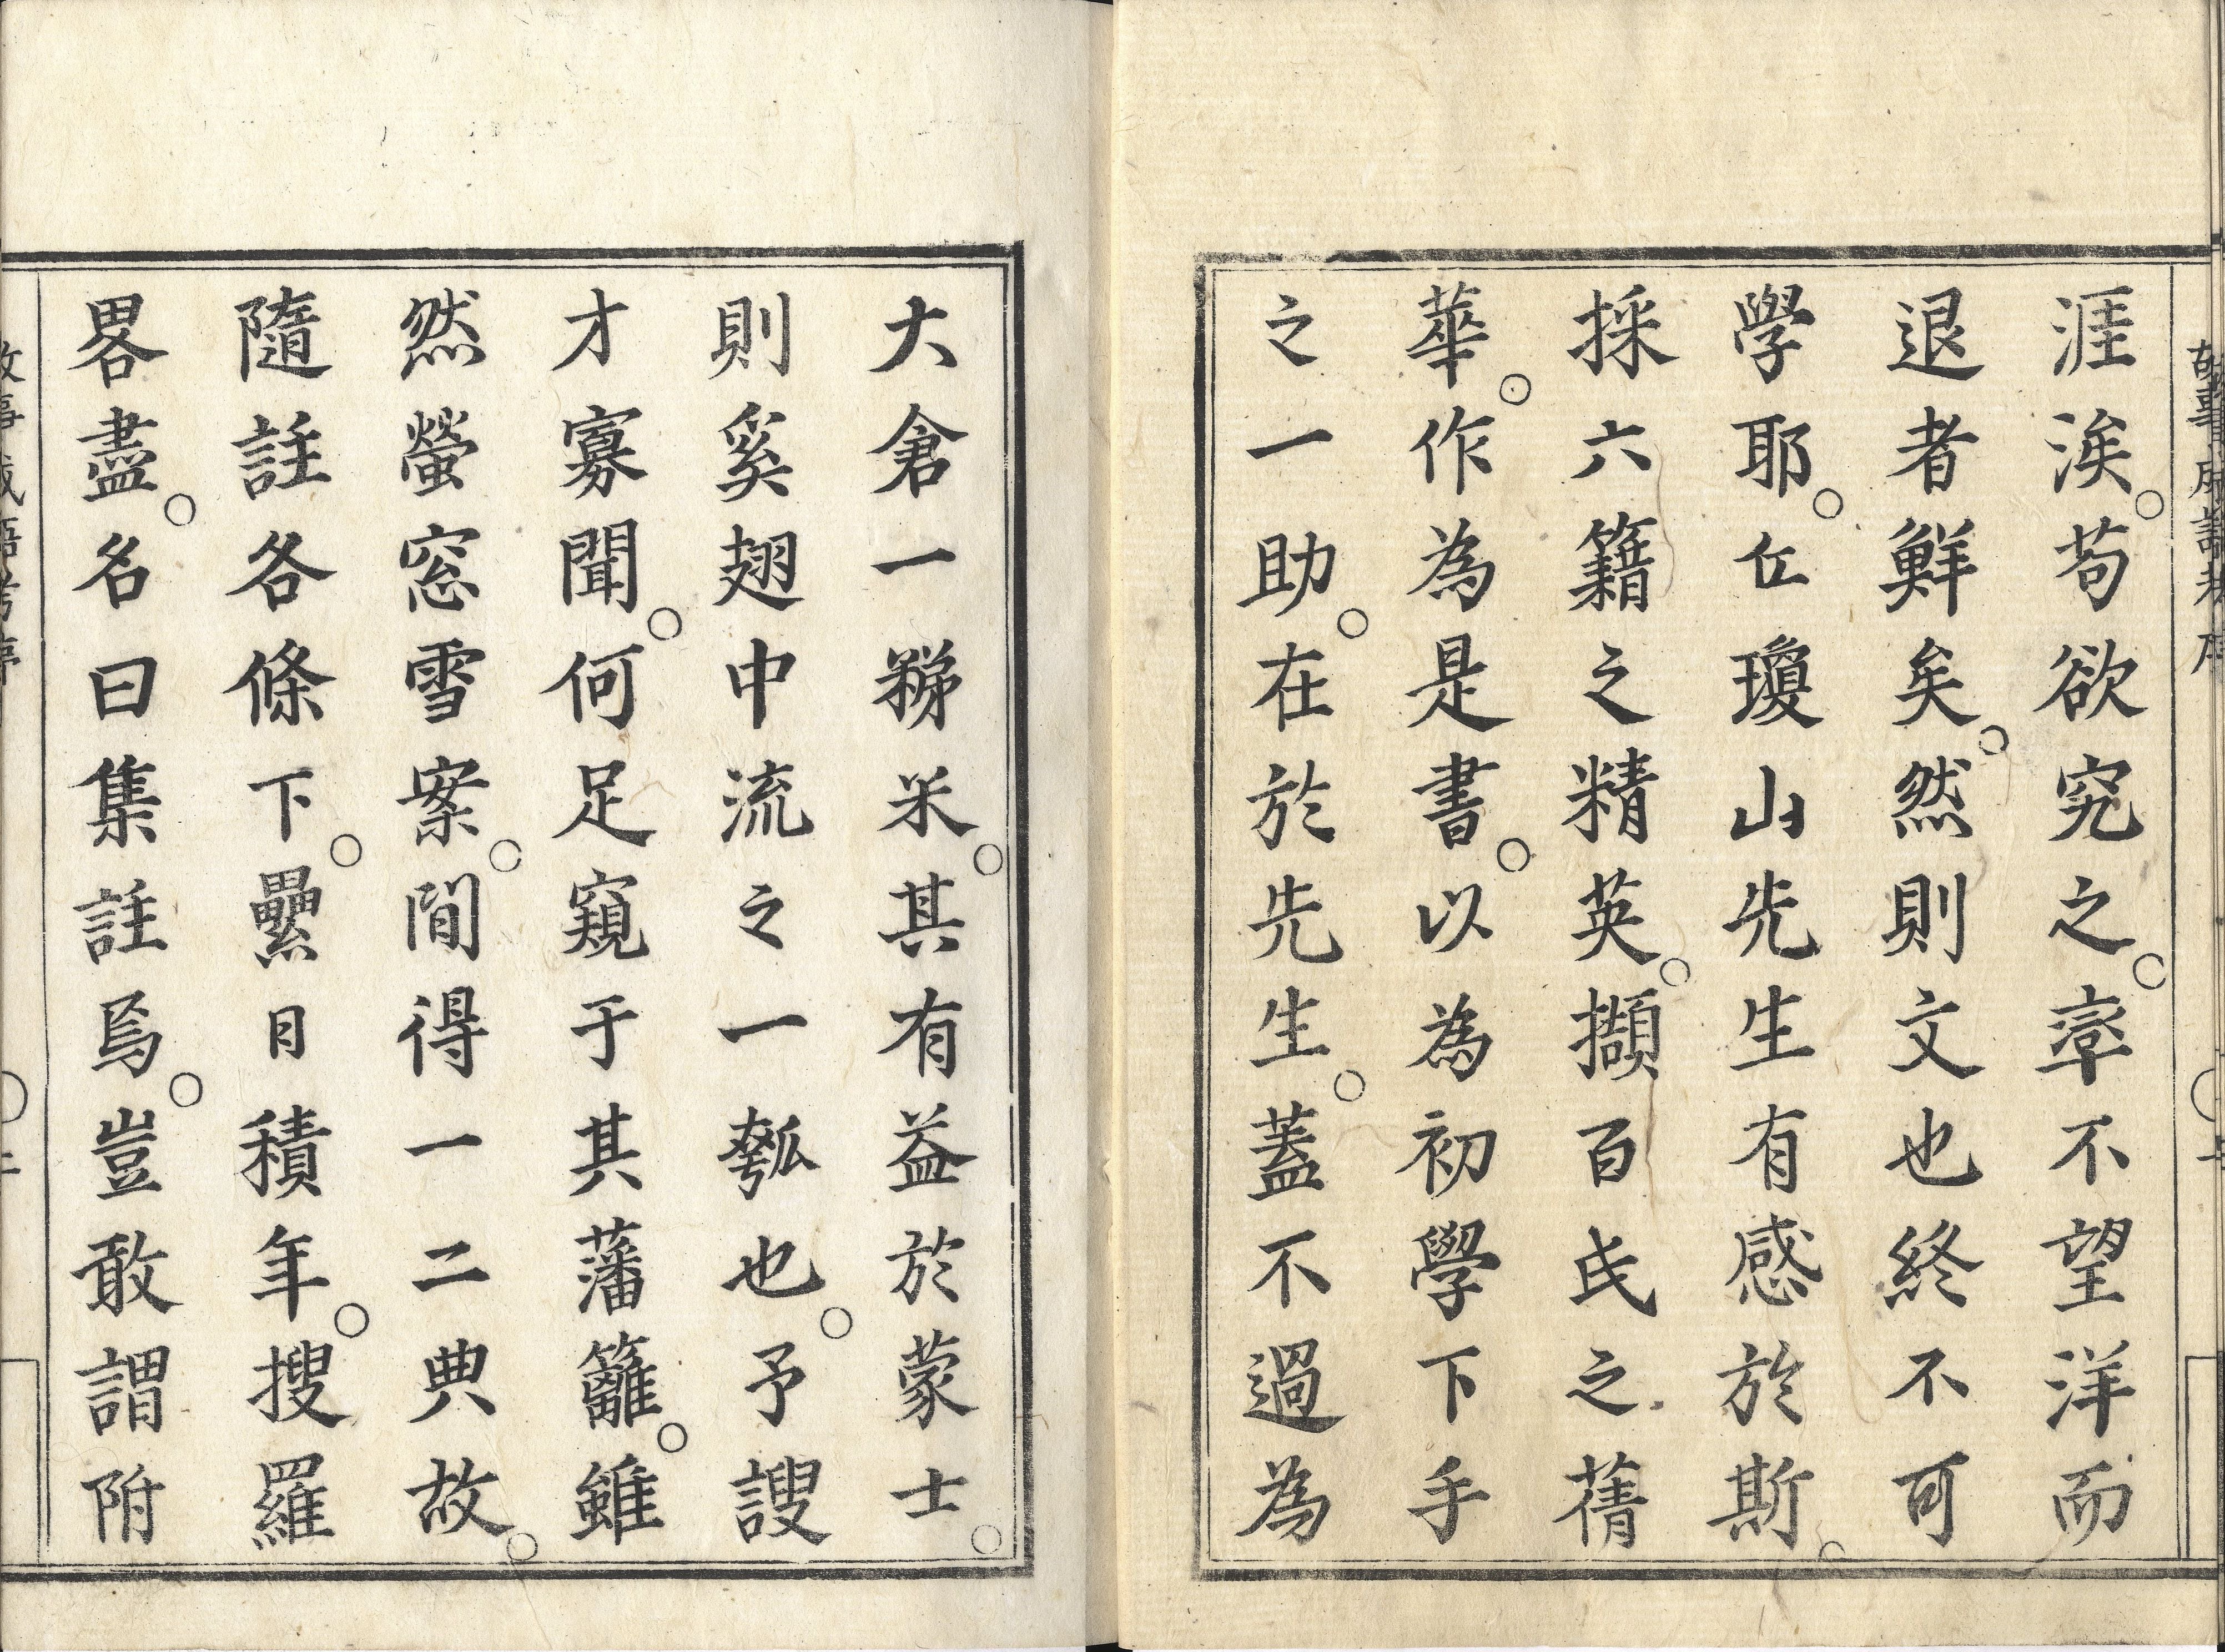 涯涘○苟欲究之○率不望洋而
退者鮮矣○然則文也終不可
學耶○丘瓊山先生有感於斯○
採六籍之精英○擷百氏之蒨
華○作為是書○以為初學下手
之一助○在於先生○蓋不過為
大倉一稊米○其有益於蒙士○
則奚翅中流之一瓠也○予謏
才寡聞○何足窺于其藩籬○雖
然螢窓雪案○間得一二典故○
隨註各條下○纍日積年○搜羅
畧盡○名曰集註焉○豈敢謂附